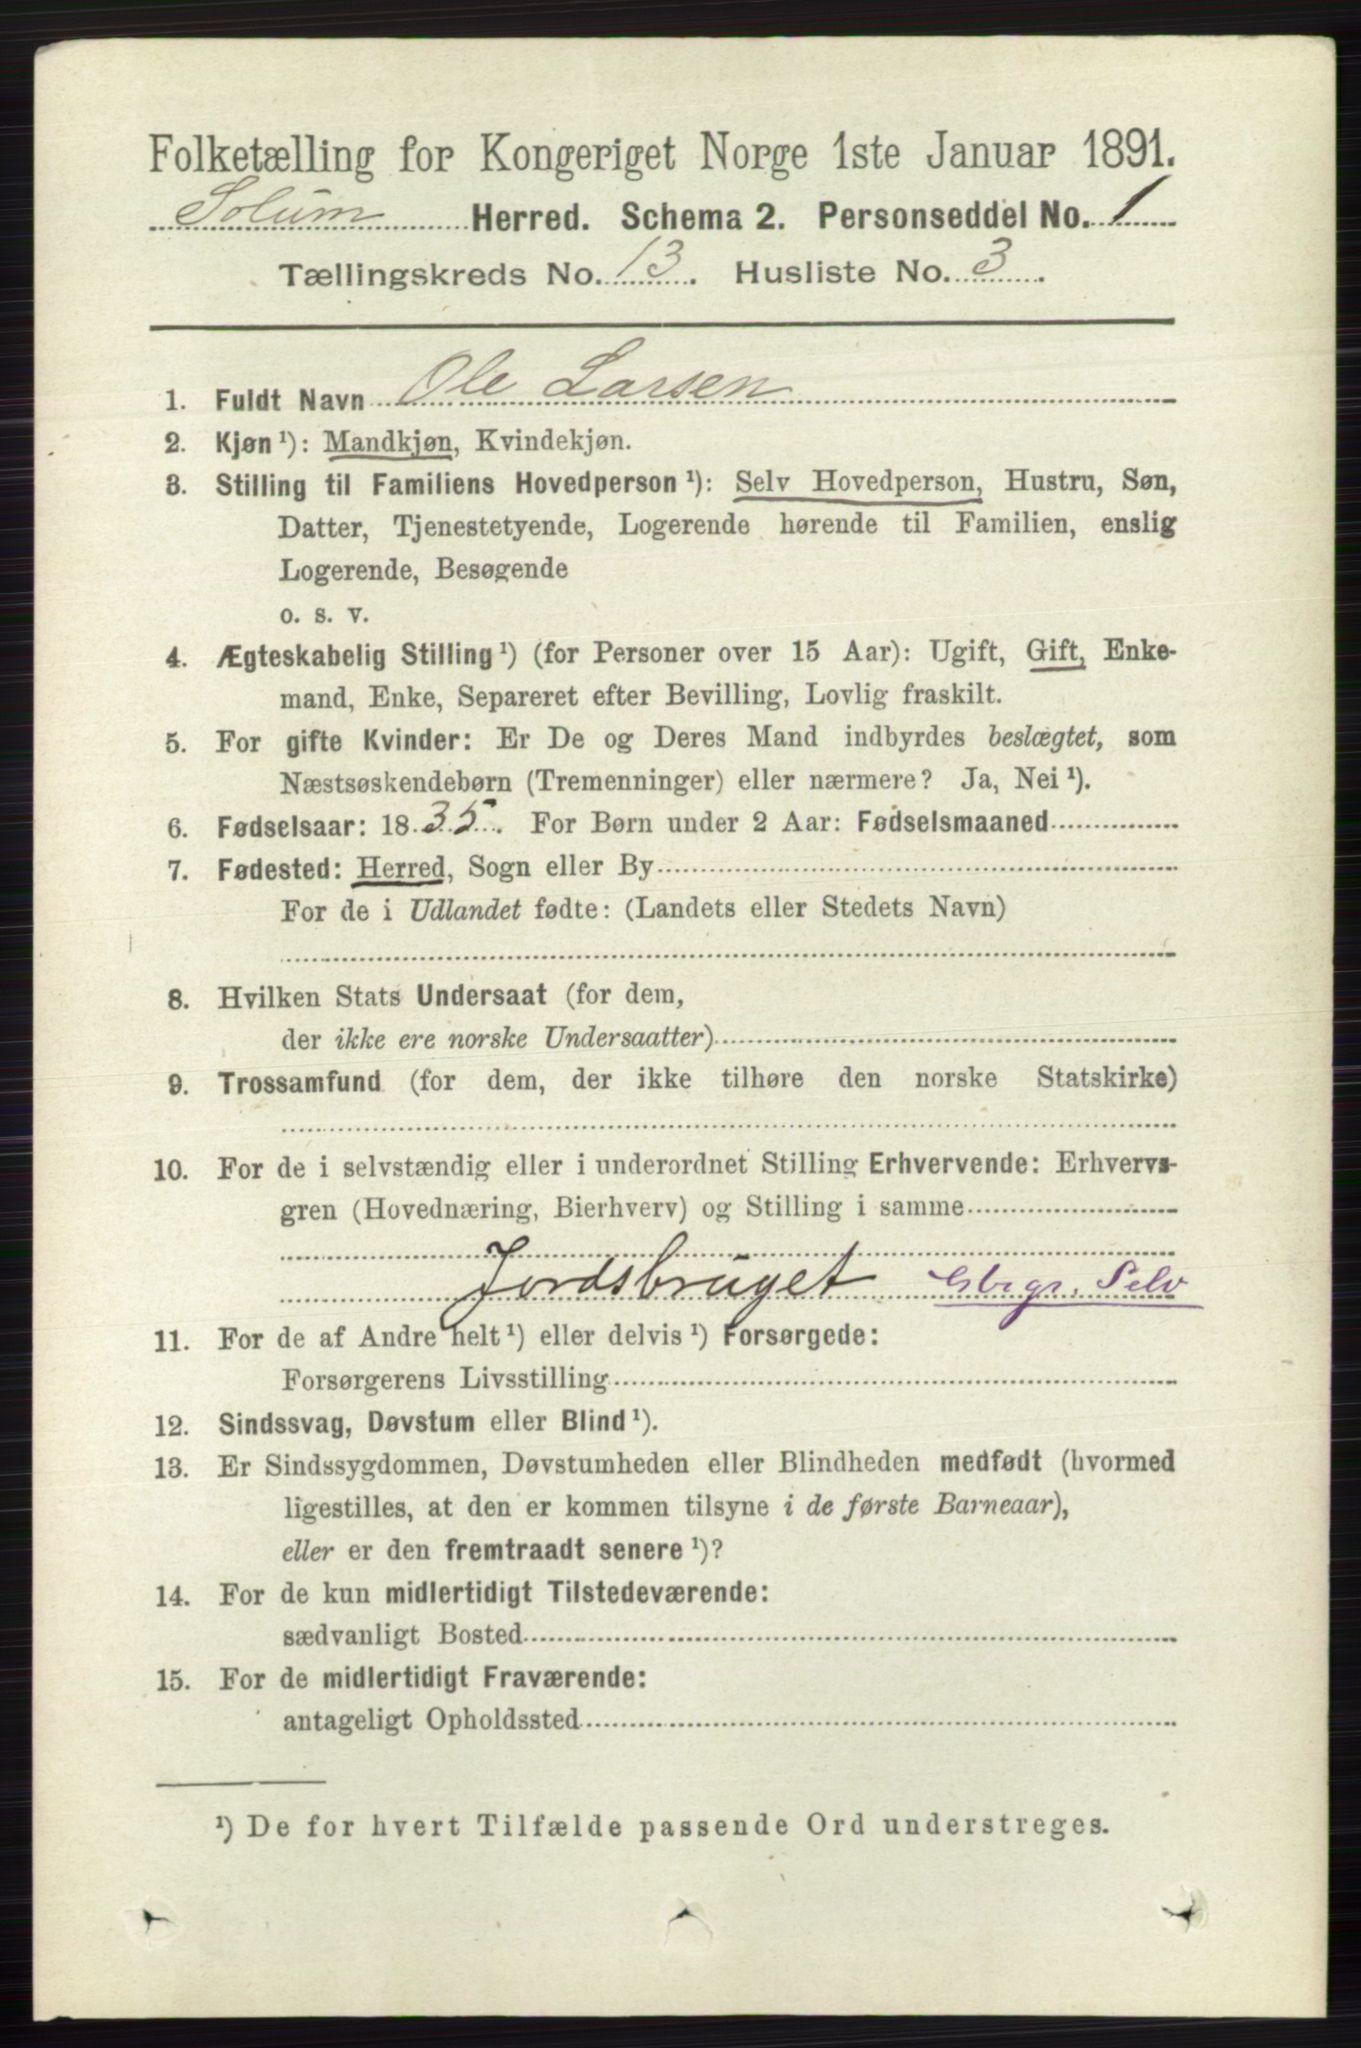 Folketælling for Kongeriget Norge 1ste Januar 1891.
Solum Herred. Schema 2. Personseddel No. 1
Tællingskreds No. 13. Husliste No. 3.
1. Fuldt Navn Ole Larsen
2. Kjøn ¹): Mandkjøn, Kvindekjøn.
3. Stilling til Familiens Hovedperson ¹): Selv Hovedperson, Hustru, Søn,
Datter, Tjenestetyende, Logerende hørende til Familien, enslig
Logerende, Besøgende
o. s. v.
4. Ægteskabelig Stilling ¹) (for Personer over 15 Aar): Ugift, Gift, Enke-
mand, Enke, Separeret efter Bevilling, Lovlig fraskilt.
5. For gifte Kvinder: Er De og Deres Mand indbyrdes beslægtet, som
Næstsøskendebørn (Tremenninger) eller nærmere? Ja, Nei ¹).
6. Fødselsaar: 1835. For Børn under 2 Aar: Fødselsmaaned
7. Fødested: Herred, Sogn eller By
For de i Udlandet fødte: (Landets eller Stedets Navn)
8. Hvilken Stats Undersaat (for dem,
der ikke ere norske Undersaatter)
9. Trossamfund (for dem, der ikke tilhøre den norske Statskirke)
10. For de i selvstændig eller i underordnet Stilling Erhvervende: Erhvervs-
gren (Hovednæring, Bierhverv) og Stilling i samme
Jordsbruget Gbrgr. Selv
11. For de af Andre helt ¹) eller delvis ¹) Forsørgede:
Forsørgerens Livsstilling
12. Sindssvag, Døvstum eller Blind ¹).
13. Er Sindssygdommen, Døvstumheden eller Blindheden medfødt (hvormed
ligestilles, at den er kommen tilsyne i de første Barneaar),
eller er den fremtraadt senere ¹)?
14. For de kun midlertidigt Tilstedeværende:
sædvanligt Bosted
15. For de midlertidigt Fraværende:
antageligt Opholdssted
¹) De for hvert Tilfælde passende Ord understreges.